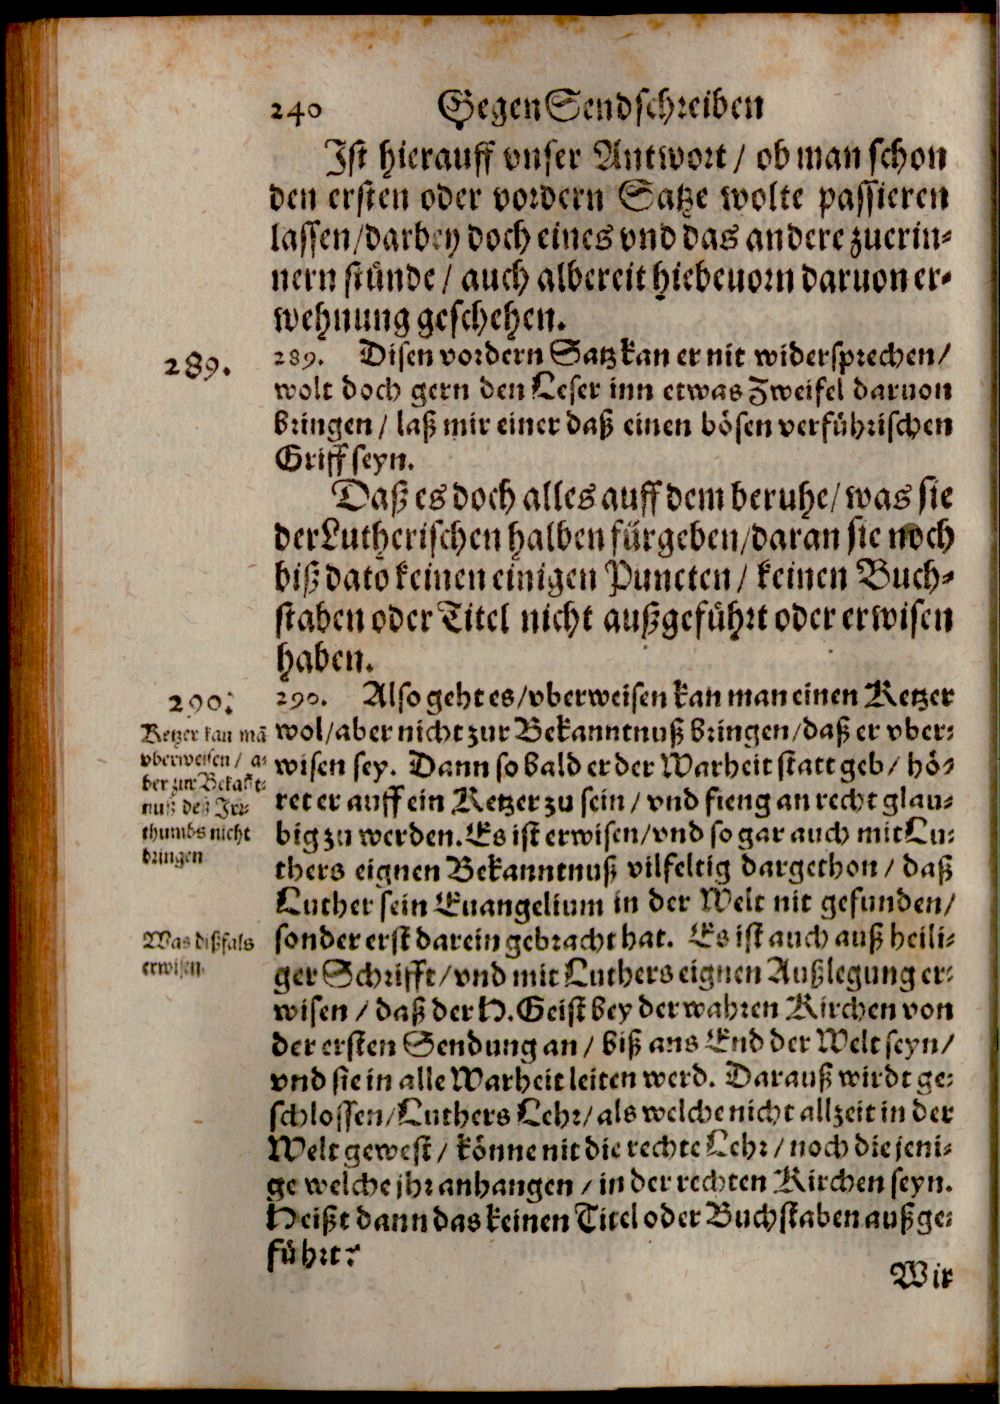 240 GegenSendschreiben
Ist hierauff vnser Antwort / ob man schon
den ersten oder vordern Satze wolte passieren
lassen/darbey doch eines vnd das andere zuerin⸗
nern stünde / auch albereit hiebeuorn daruon er⸗
wehnung geschehen.
289.
289. Disen vordern Satz kan er nit widersprechen/
wolt doch gern den Leser inn etwas Zweifel daruon
bringen / laß mir einer daß einen bösen verführischen
Griff seyn.
Daß es doch alles auff dem beruhe/ was sie
der Lutherischen halben fürgeben/daran sie noch
biß dato keinen einigen Puncten / keinen Buch⸗
staben oder Titel nicht außgeführt oder erwisen
haben.
290.
Ketzer kan mã
vberweisen / a⸗
ber zur Bekañt⸗
nuß deß Irr⸗
thumbs nicht
bringen
290. Also geht es/vberweisen kan man einen Ketzer
wol/aber nicht zur Bekanntnuß bringen/daß er vber⸗
wisen sey. Dann so bald er der Warheit statt geb/ hö⸗
ret er auff ein Ketzer zu sein / vnd fieng an recht glau⸗
big zu werden. Es ist erwisen/vnd so gar auch mit Lu⸗
thers eignen Bekanntnuß vilfeltig dargethon / daß
Luther sein Euangelium in der Welt nit gefunden/
Was dißfals
erwisen
sonder erst darein gebracht hat. Es ist auch auß heili⸗
ger Schrifft/vnd mit Luthers eignen Außlegung er⸗
wisen / daß der H. Geist bey der wahren Kirchen von
der ersten Sendung an / biß ans End der Welt seyn/
vnd sie in alle Warheit leiten werd. Darauß wirdt ge⸗
schlossen/Luthers Lehr/als welche nicht allzeit in der
Welt gewest / könne nit die rechte Lehr / noch die jeni⸗
ge welche jhr anhangen / in der rechten Kirchen seyn.
Heißt dann das keinen Titel oder Buchstaben außge⸗
führt?
Wir